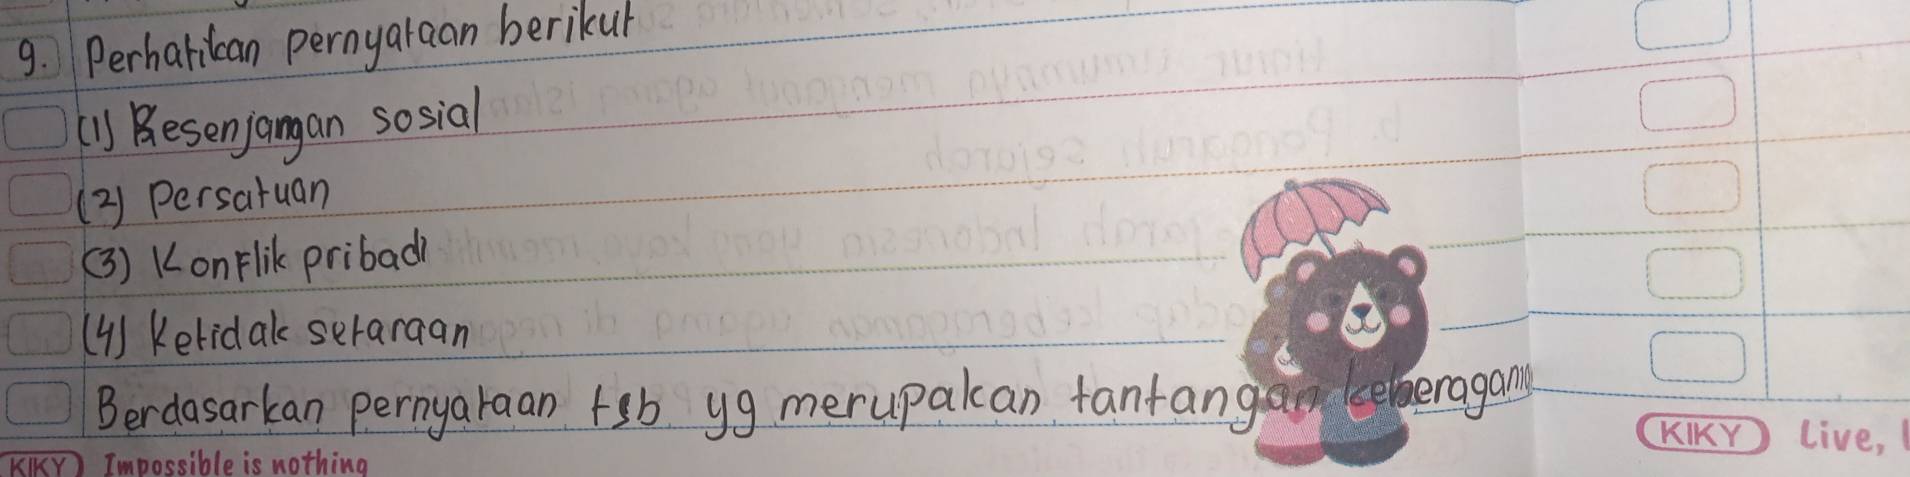 9. Perhatikan pernyataan berikut
(1) Kesenjangan sosial
(2) Persatuan
(3) Konflik pribadi
(4) Ketidak setaraan
Berdasarkan pernyataan tsb yg merupakan tantangan keberagama
KIKY Impossible is nothing
KIKY Live,